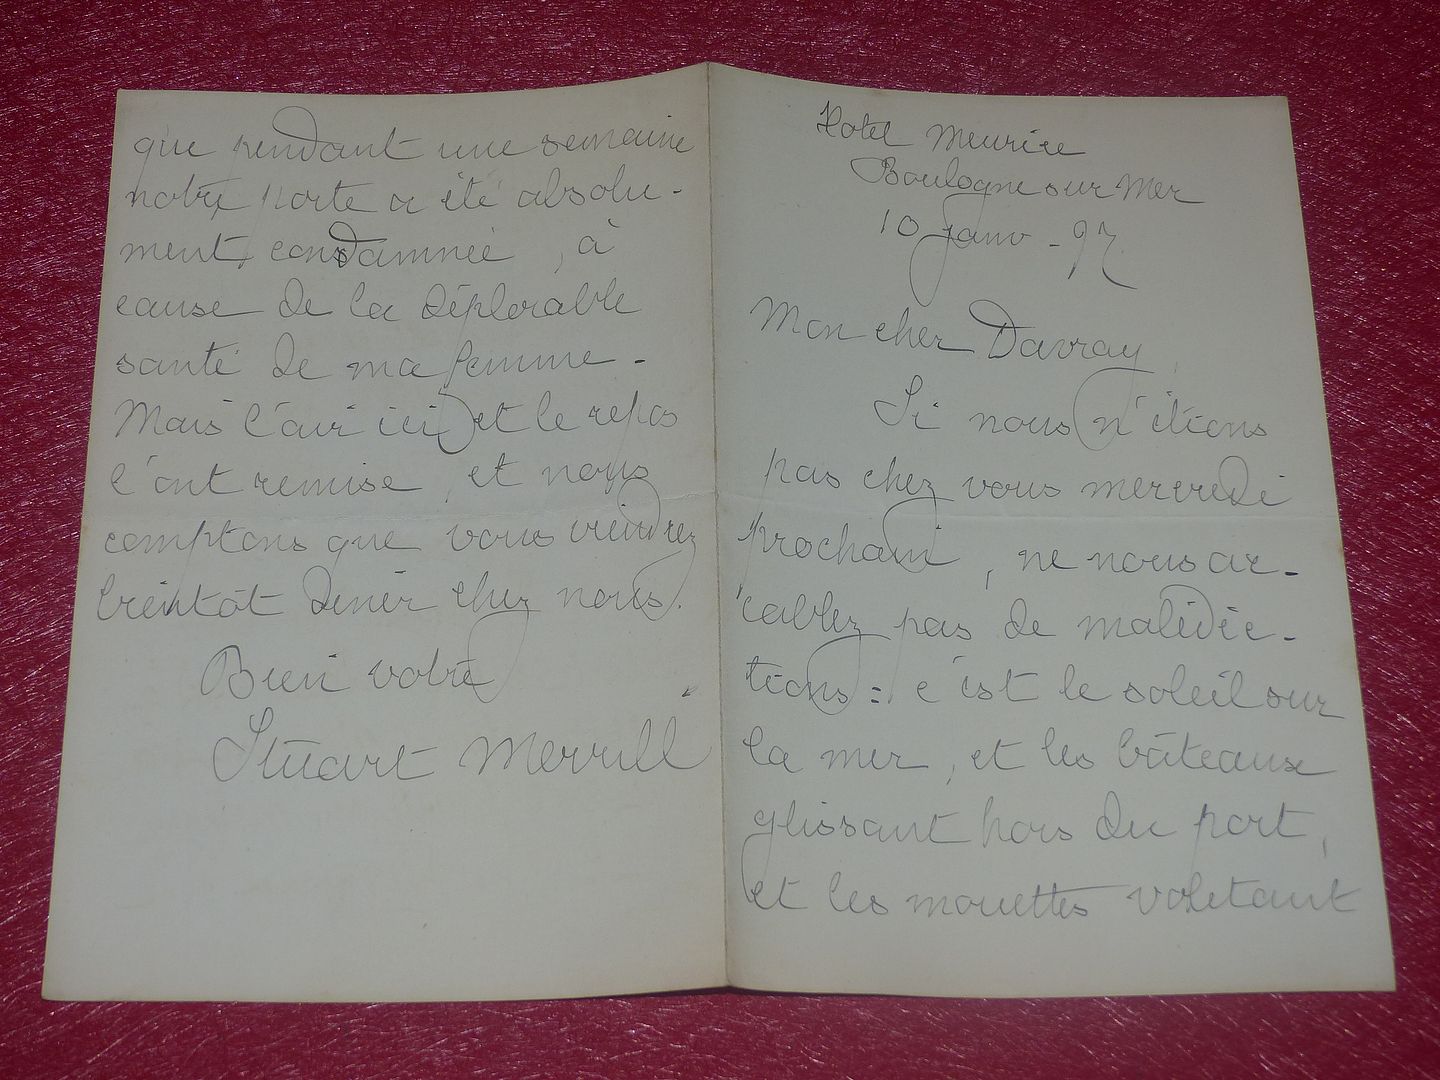 Hotel Meurice
Boulogne sur Mer
10 Janv - 97
Mon cher Davray,
Si nous n'étions
pas chez vous mercredi
prochain, ne nous ac-
cablez pas de malédic-
tions : c'est le soleil sur
la mer, et les bâteaux
glissant hors du port,
et les mouettes voletant
que pendant une semaine
notre porte a été absolu-
ment condamnée, à
cause de la déplorable
santé de ma femme -
Mais l'air ici et le repos
l'ont remise, et nous
comptons que vous viendrez
bientôt diner chez nous.
Bien votre
Stuart Merrill